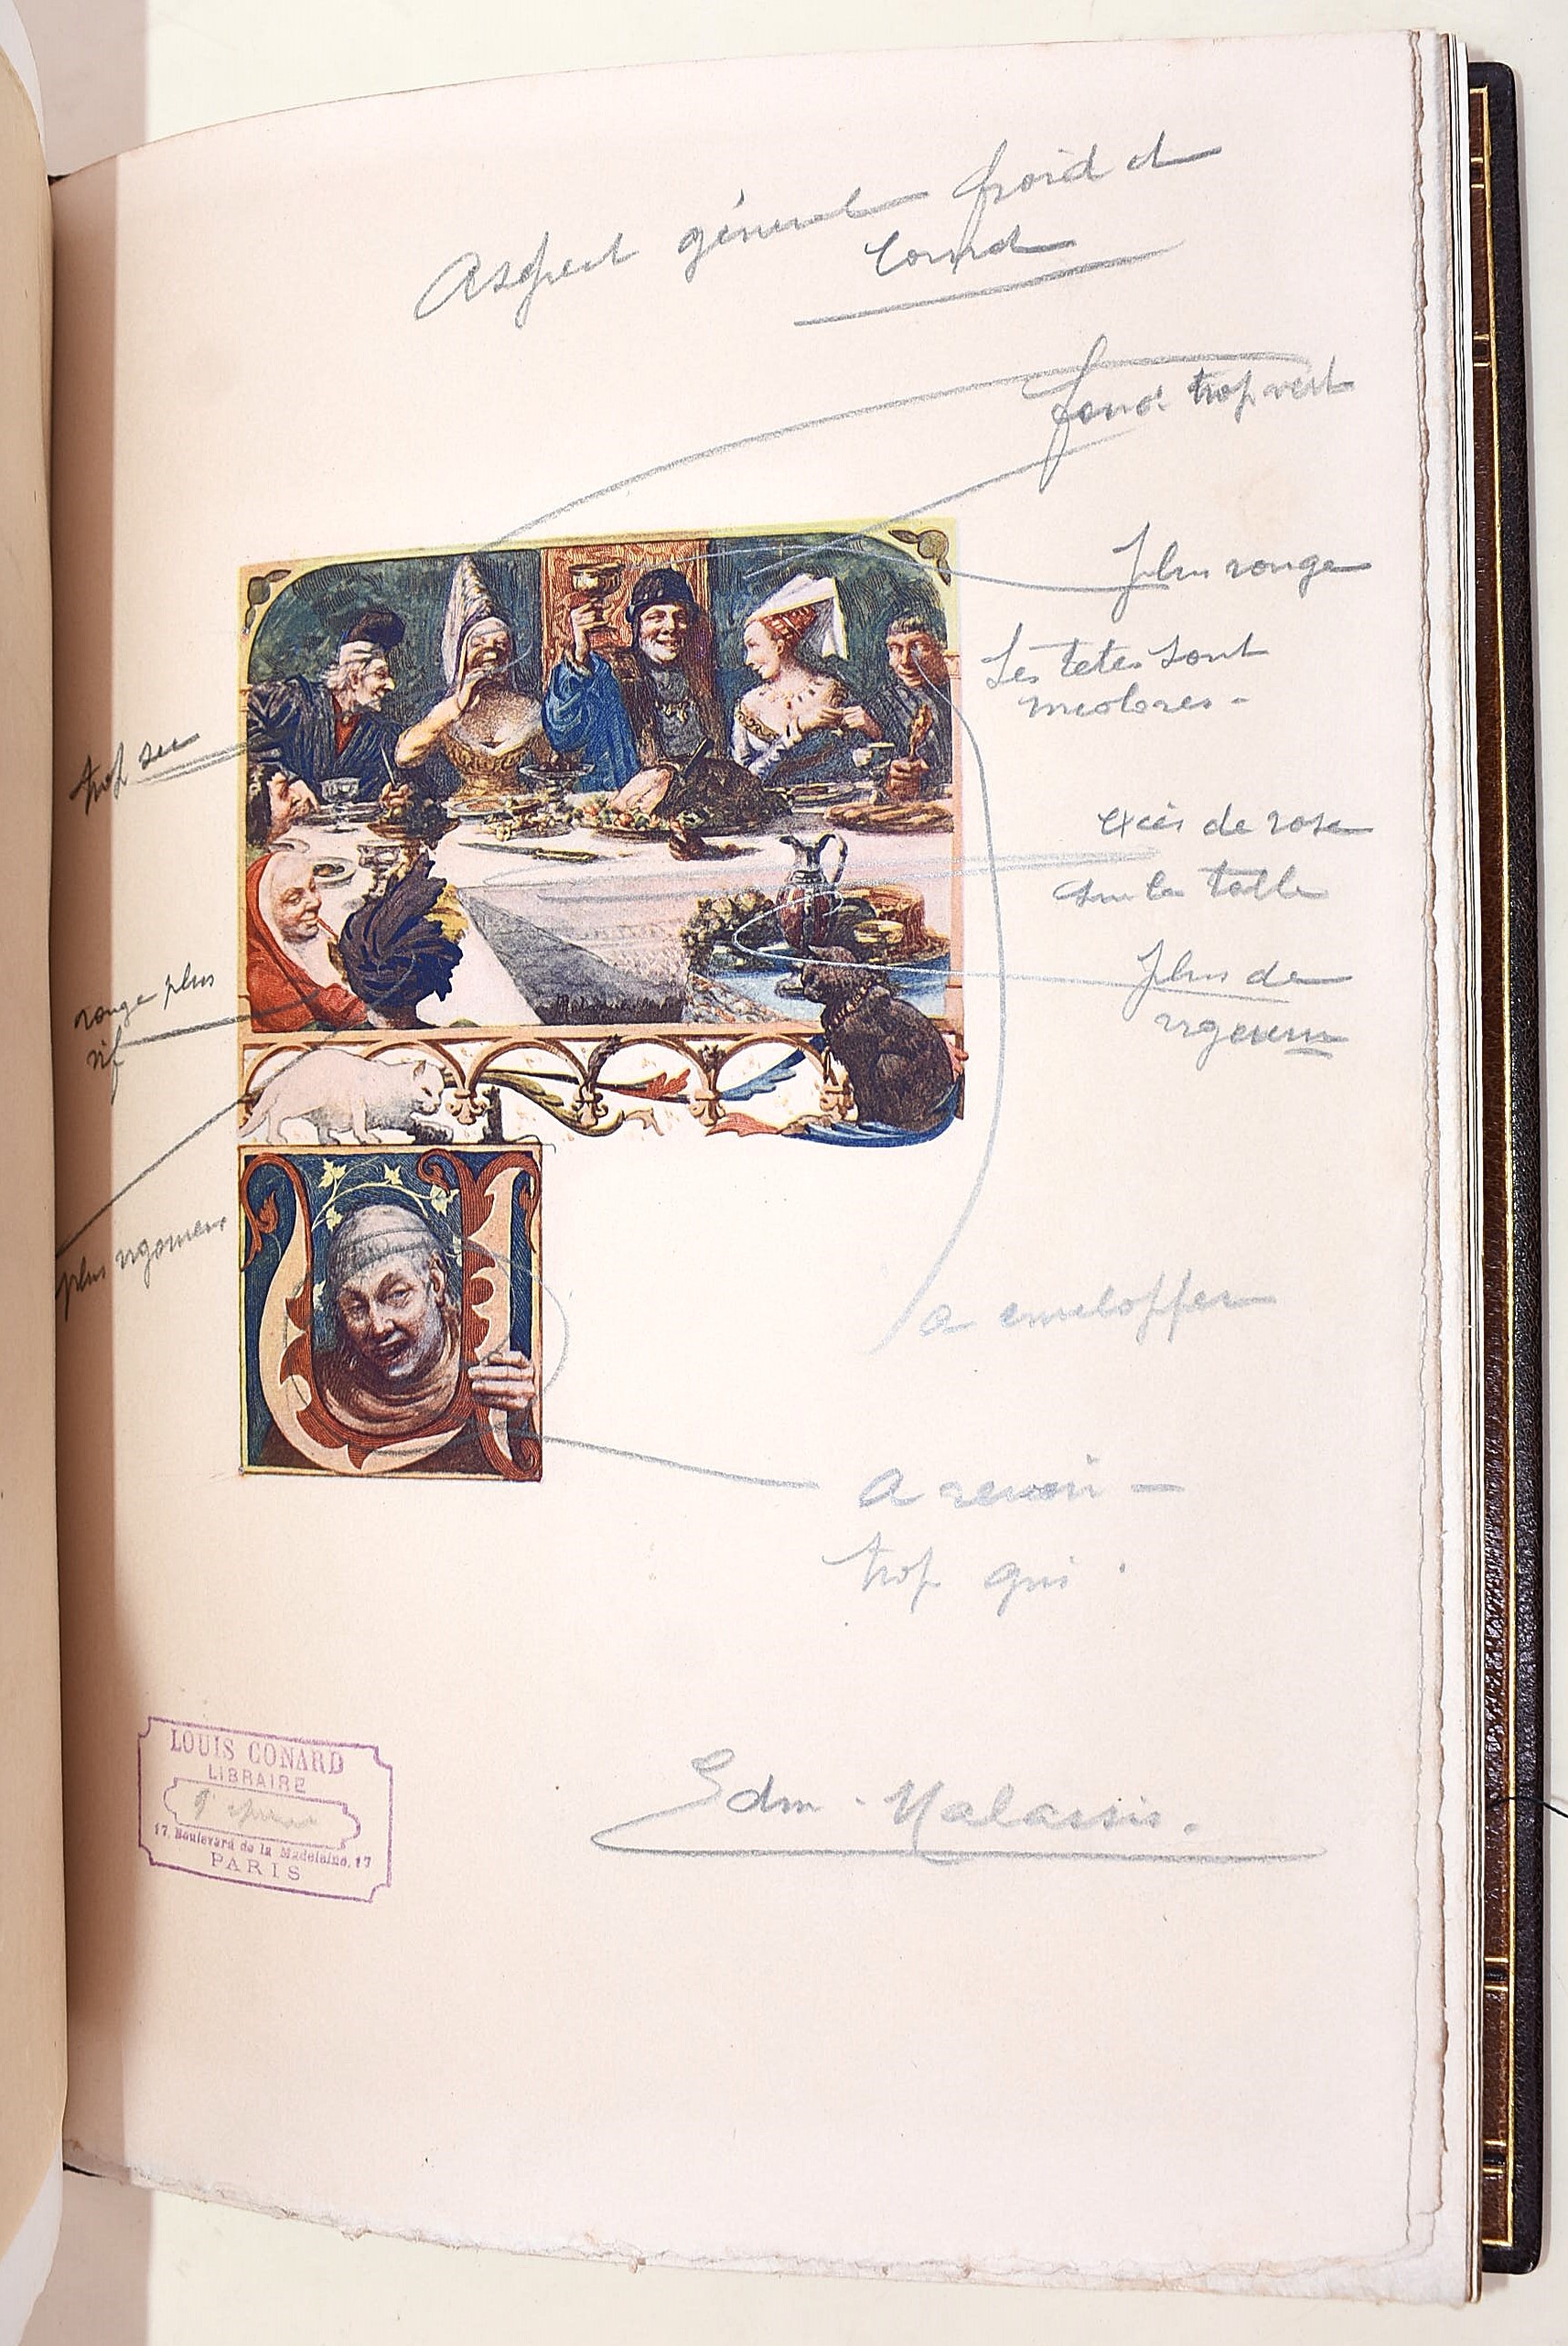 Aspect général froid et
lourd
fond trop vert
plus rouge
Les tetes sont
incolores -
trop sec
excès de rose
sur la table
plus de
vigueur
rouge plus
vif
plus vigoureux
a envelopper
a revoir -
trop gris.
Edm. Malassis.
LOUIS CONARD
LIBRAIRE
17, Boulevard de la Madeleine, 17
PARIS